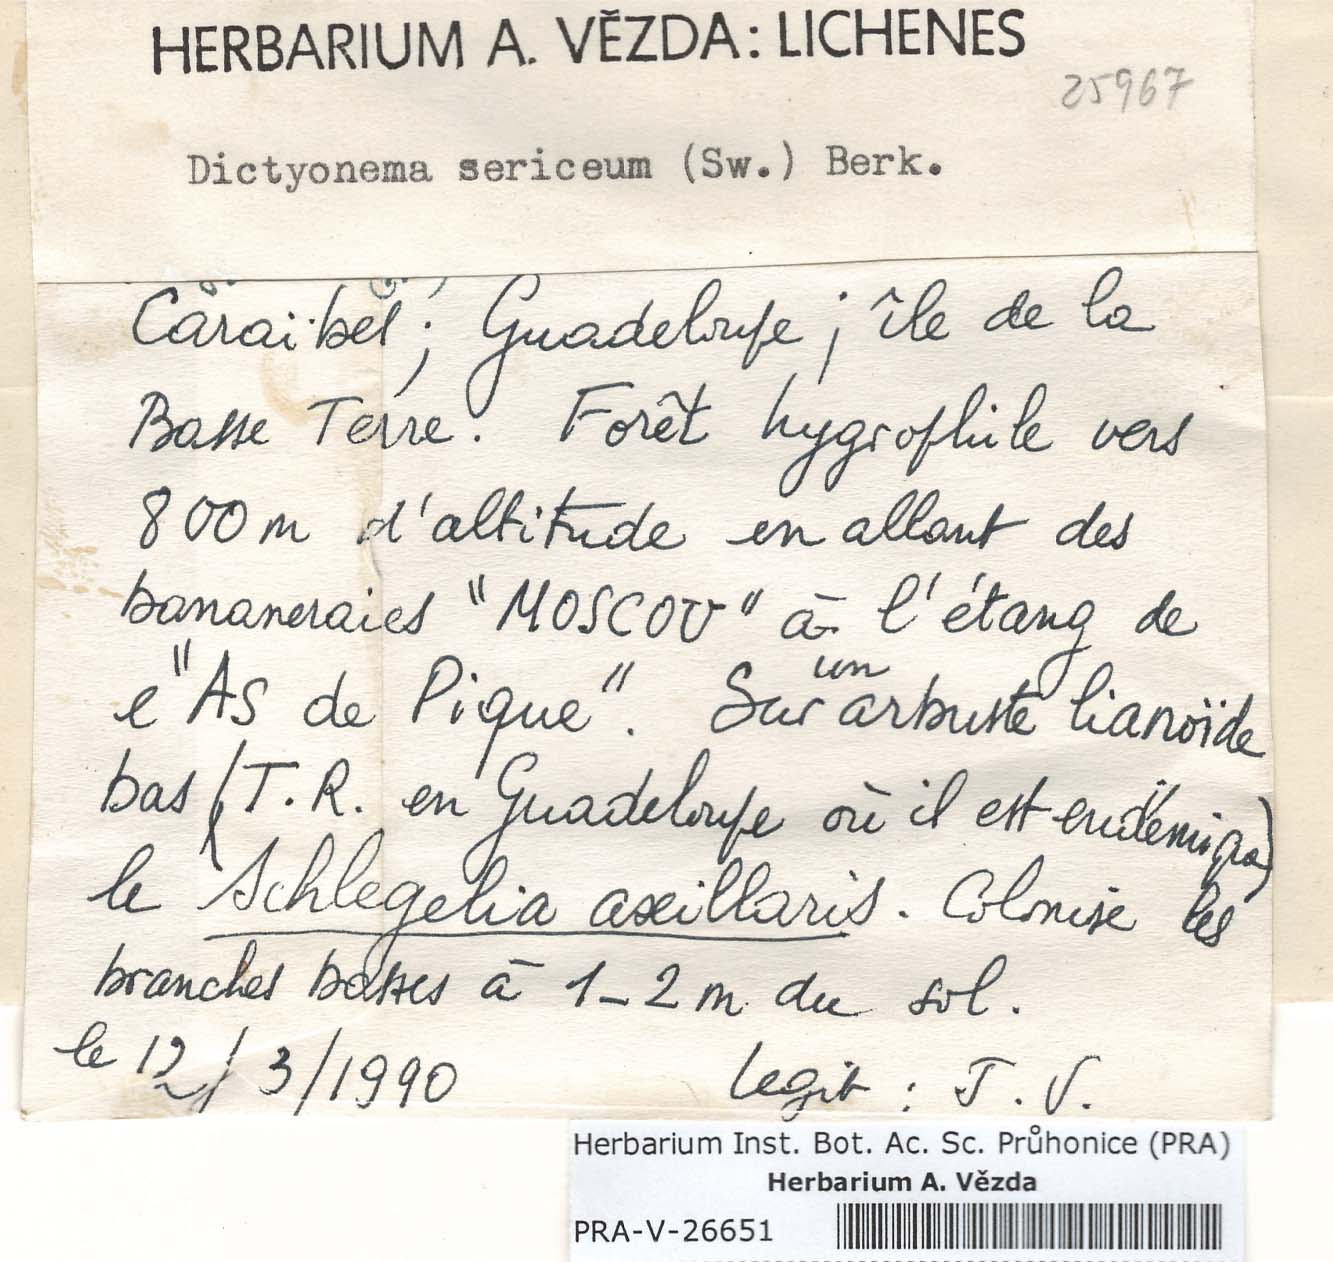 HERBARIUM A. VĚZDA: LICHENES
25967
Dictyonema sericeum (Sw.) Berk.
Caraïbes; Guadeloupe; île de la
Basse Terre. Forêt hygrophile vers
800m d'altitude en allant des
bananeraies "MOSCOU" à l'étang de
l'"AS de Pique". Sur un arbuste lianoïde
bas (T.R. en Guadeloupe où il est endémique)
le Schlegelia axillaris. Colonise les
branches basses à 1-2m du sol.
le 12/3/1990 Legit : J. V.
Herbarium Inst. Bot. Ac. Sc. Průhonice (PRA)
Herbarium A. Vězda
PRA-V-26651